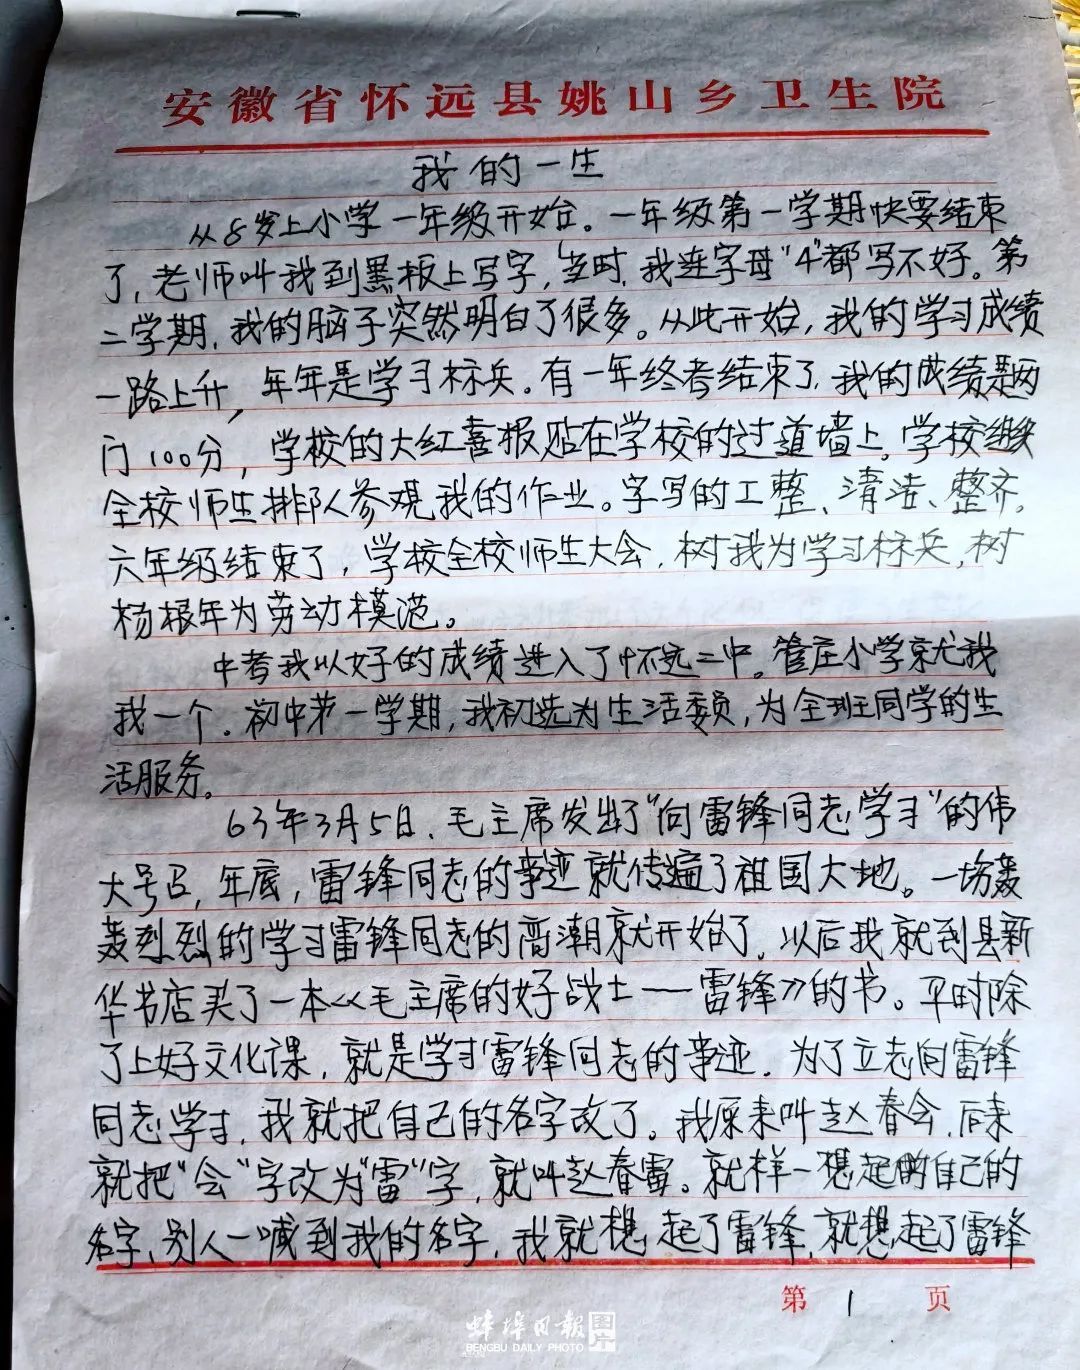 安徽省怀远县姚山乡卫生院
我的一生
从8岁上小学一年级开始。一年级第一学期快要结束
了,老师叫我到黑板上写字,当时,我连字母"4"都写不好。第
二学期,我的脑子突然明白了很多。从此开始,我的学习成绩
一路上升,年年是学习标兵。有一年终考结束了,我的成绩是两
门100分,学校的大红喜报贴在学校的过道墙上。学校组织
全校师生排队参观我的作业。字写的工整、清洁、整齐。
六年级结束了,学校全校师生大会,树我为学习标兵,树
杨根年为劳动模范。
中考我以好的成绩进入了怀远二中。管庄小学就我
我一个。初中第一学期,我初选为生活委员,为全班同学的生
活服务。
63年3月5日、毛主席发出了"向雷锋同志学习"的伟
大号召,年底,雷锋同志的事迹就传遍了祖国大地。一场轰
轰烈烈的学习雷锋同志的高潮就开始了。以后我就到县新
华书店买了一本《毛主席的好战士——雷锋》的书。平时除
了上好文化课,就是学习雷锋同志的事迹。为了立志向雷锋
同志学习,我就把自己的名字改了。我原来叫赵春会,后来
就把"会"字改为"雷"字,就叫赵春雷。就样一想起自己的
名字、别人一喊到我的名字,我就想起了雷锋,就想起了雷锋
第 1 页
蚌埠日报图片
BENGBU DAILY PHOTO